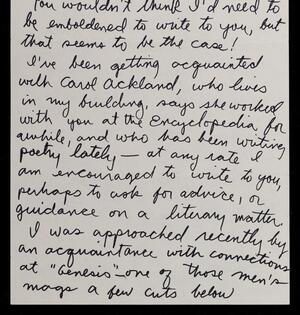 You wouldn't think I'd need to
be emboldened to write to you, but
that seems to be the case!
I've been getting acquainted
with Carol Ackland, who lives
in my building, says she worked
with you at the Encyclopedia for
awhile, and who has been writing
poetry lately — at any rate I
am encouraged to write to you,
perhaps to ask for advice, or
guidance on a literary matter.
I was approached recently by
an acquaintance with connections
at "Genesis" — one of those men's
mags a few cuts below